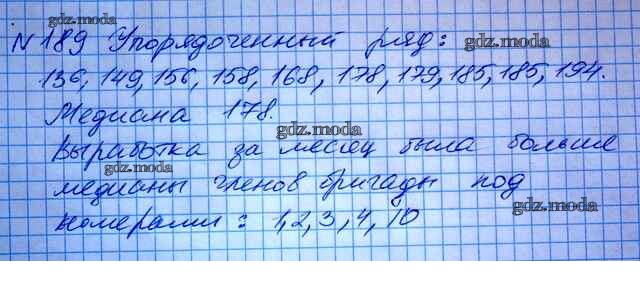 №189 Упорядоченный ряд:
136, 149, 156, 158, 168, 178, 179, 185, 185, 194.
Медиана 178.
Выработка за месяц была больше
медианы членов бригады под
номерами: 1, 2, 3, 4, 10
gdz.moda
gdz.moda
gdz.moda
gdz.moda
gdz.moda
gdz.moda
gdz.moda